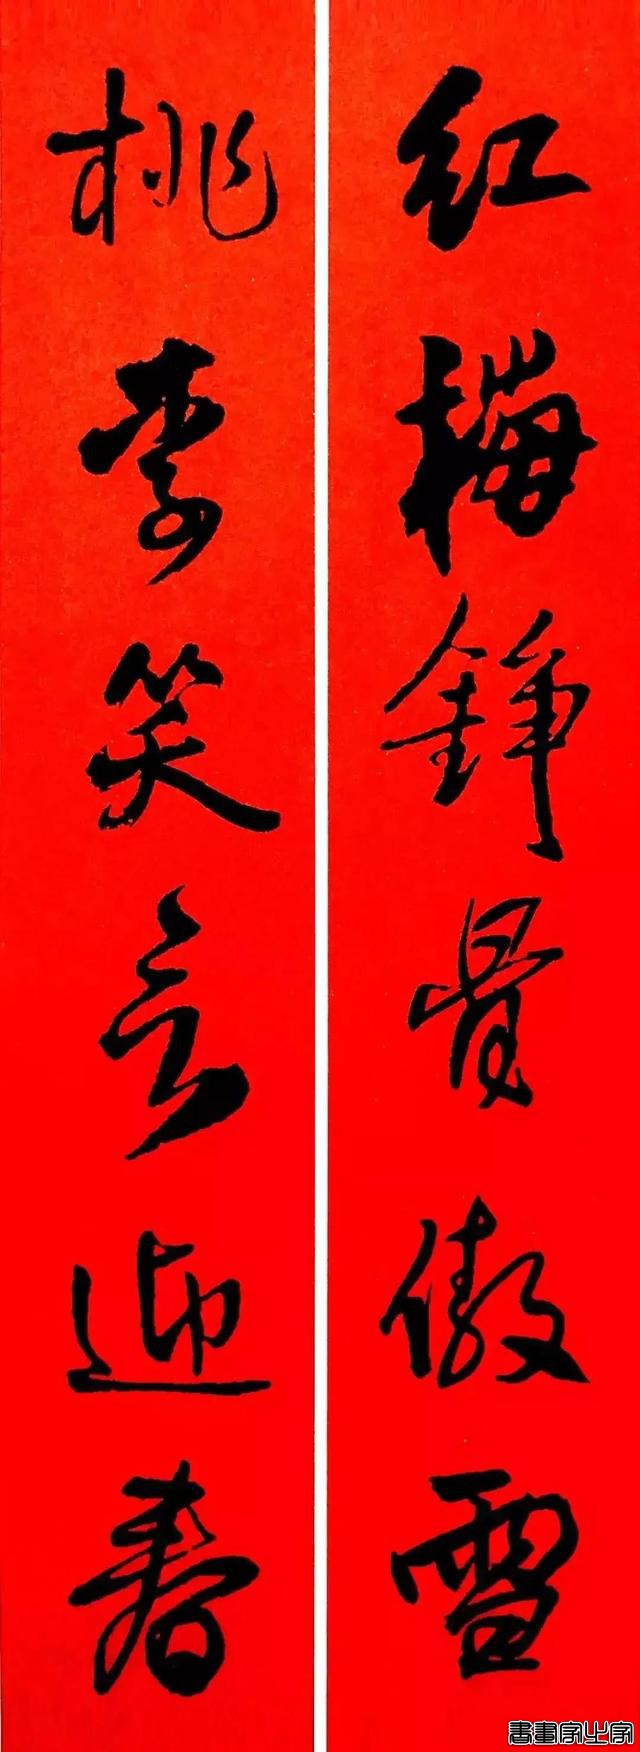 红梅錚骨傲雪
桃李笑言迎春
書畫家之家